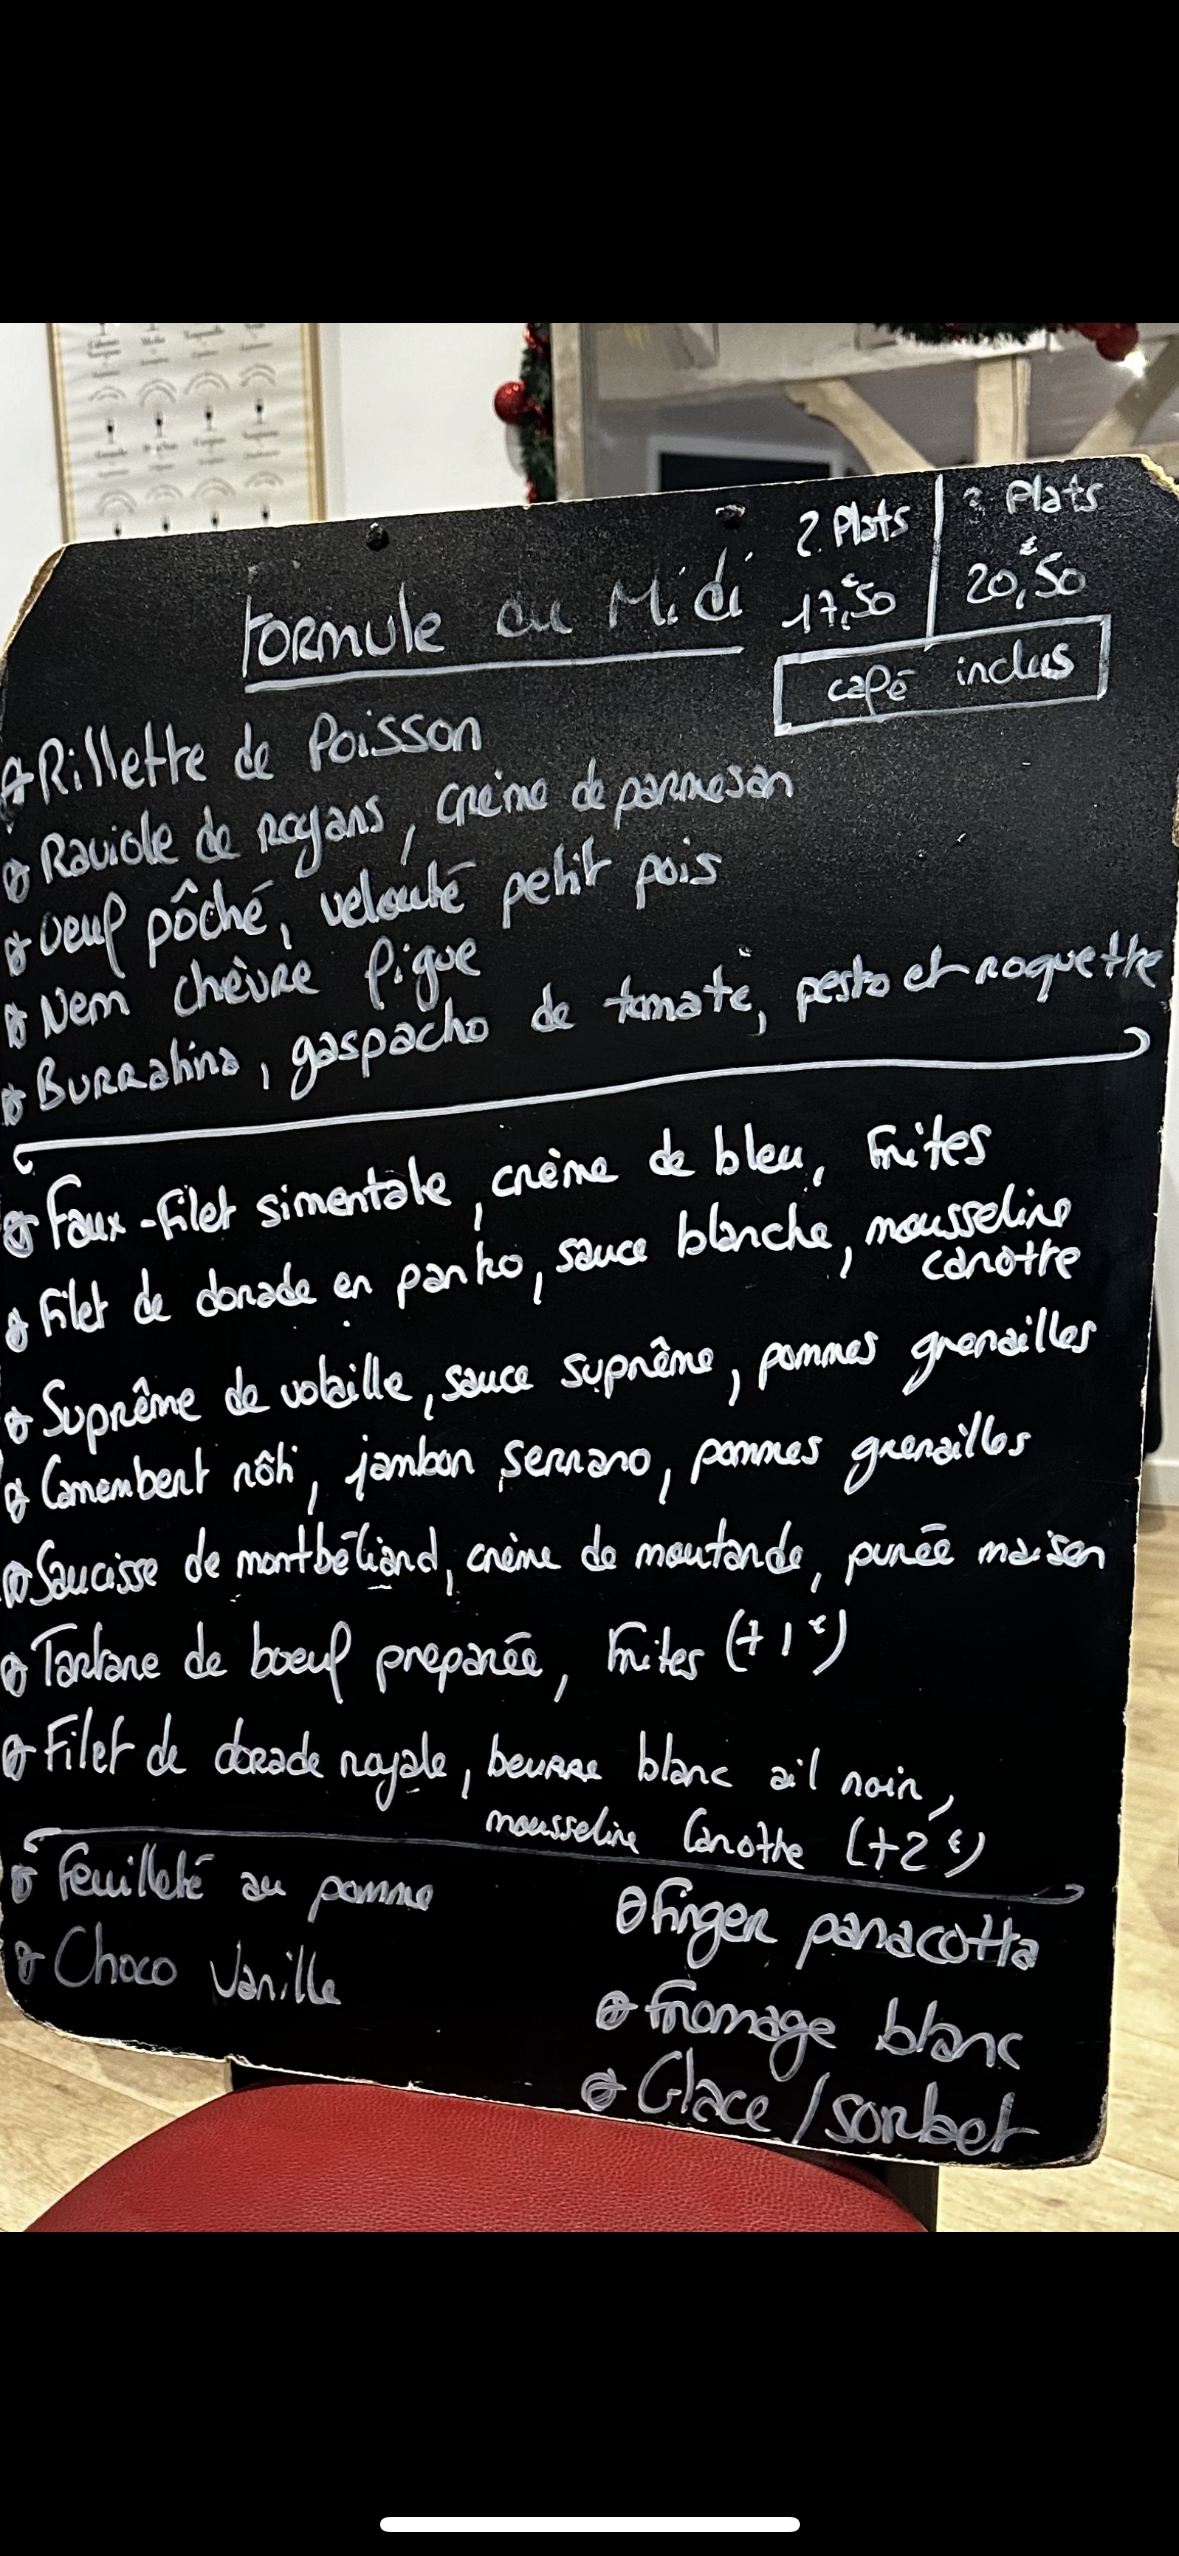 2 Plats
17,€50
3 Plats
20,€50
Formule du Midi
café inclus
Rillette de Poisson
Raviole de royans, crème de parmesan
Oeuf pôché, velouté petit pois
Nem chèvre figue
Burratina, gaspacho de tomate, pesto et roquette
Faux-filet simentale, crème de bleu, Frites
Filet de dorade en panko, sauce blanche, mousseline
carotte
Suprême de volaille, sauce suprême, pommes grenailles
Camembert rôti, jambon serrano, pommes grenailles
Saucisse de montbéliard, crème de moutarde, purée maison
Tartare de boeuf preparée, Frites (+1€)
Filet de dorade royale, beurre blanc ail noir,
mousseline Carotte (+2€)
Feuilleté au pomme
Choco Vanille
Finger panacotta
Fromage blanc
Glace / sorbet